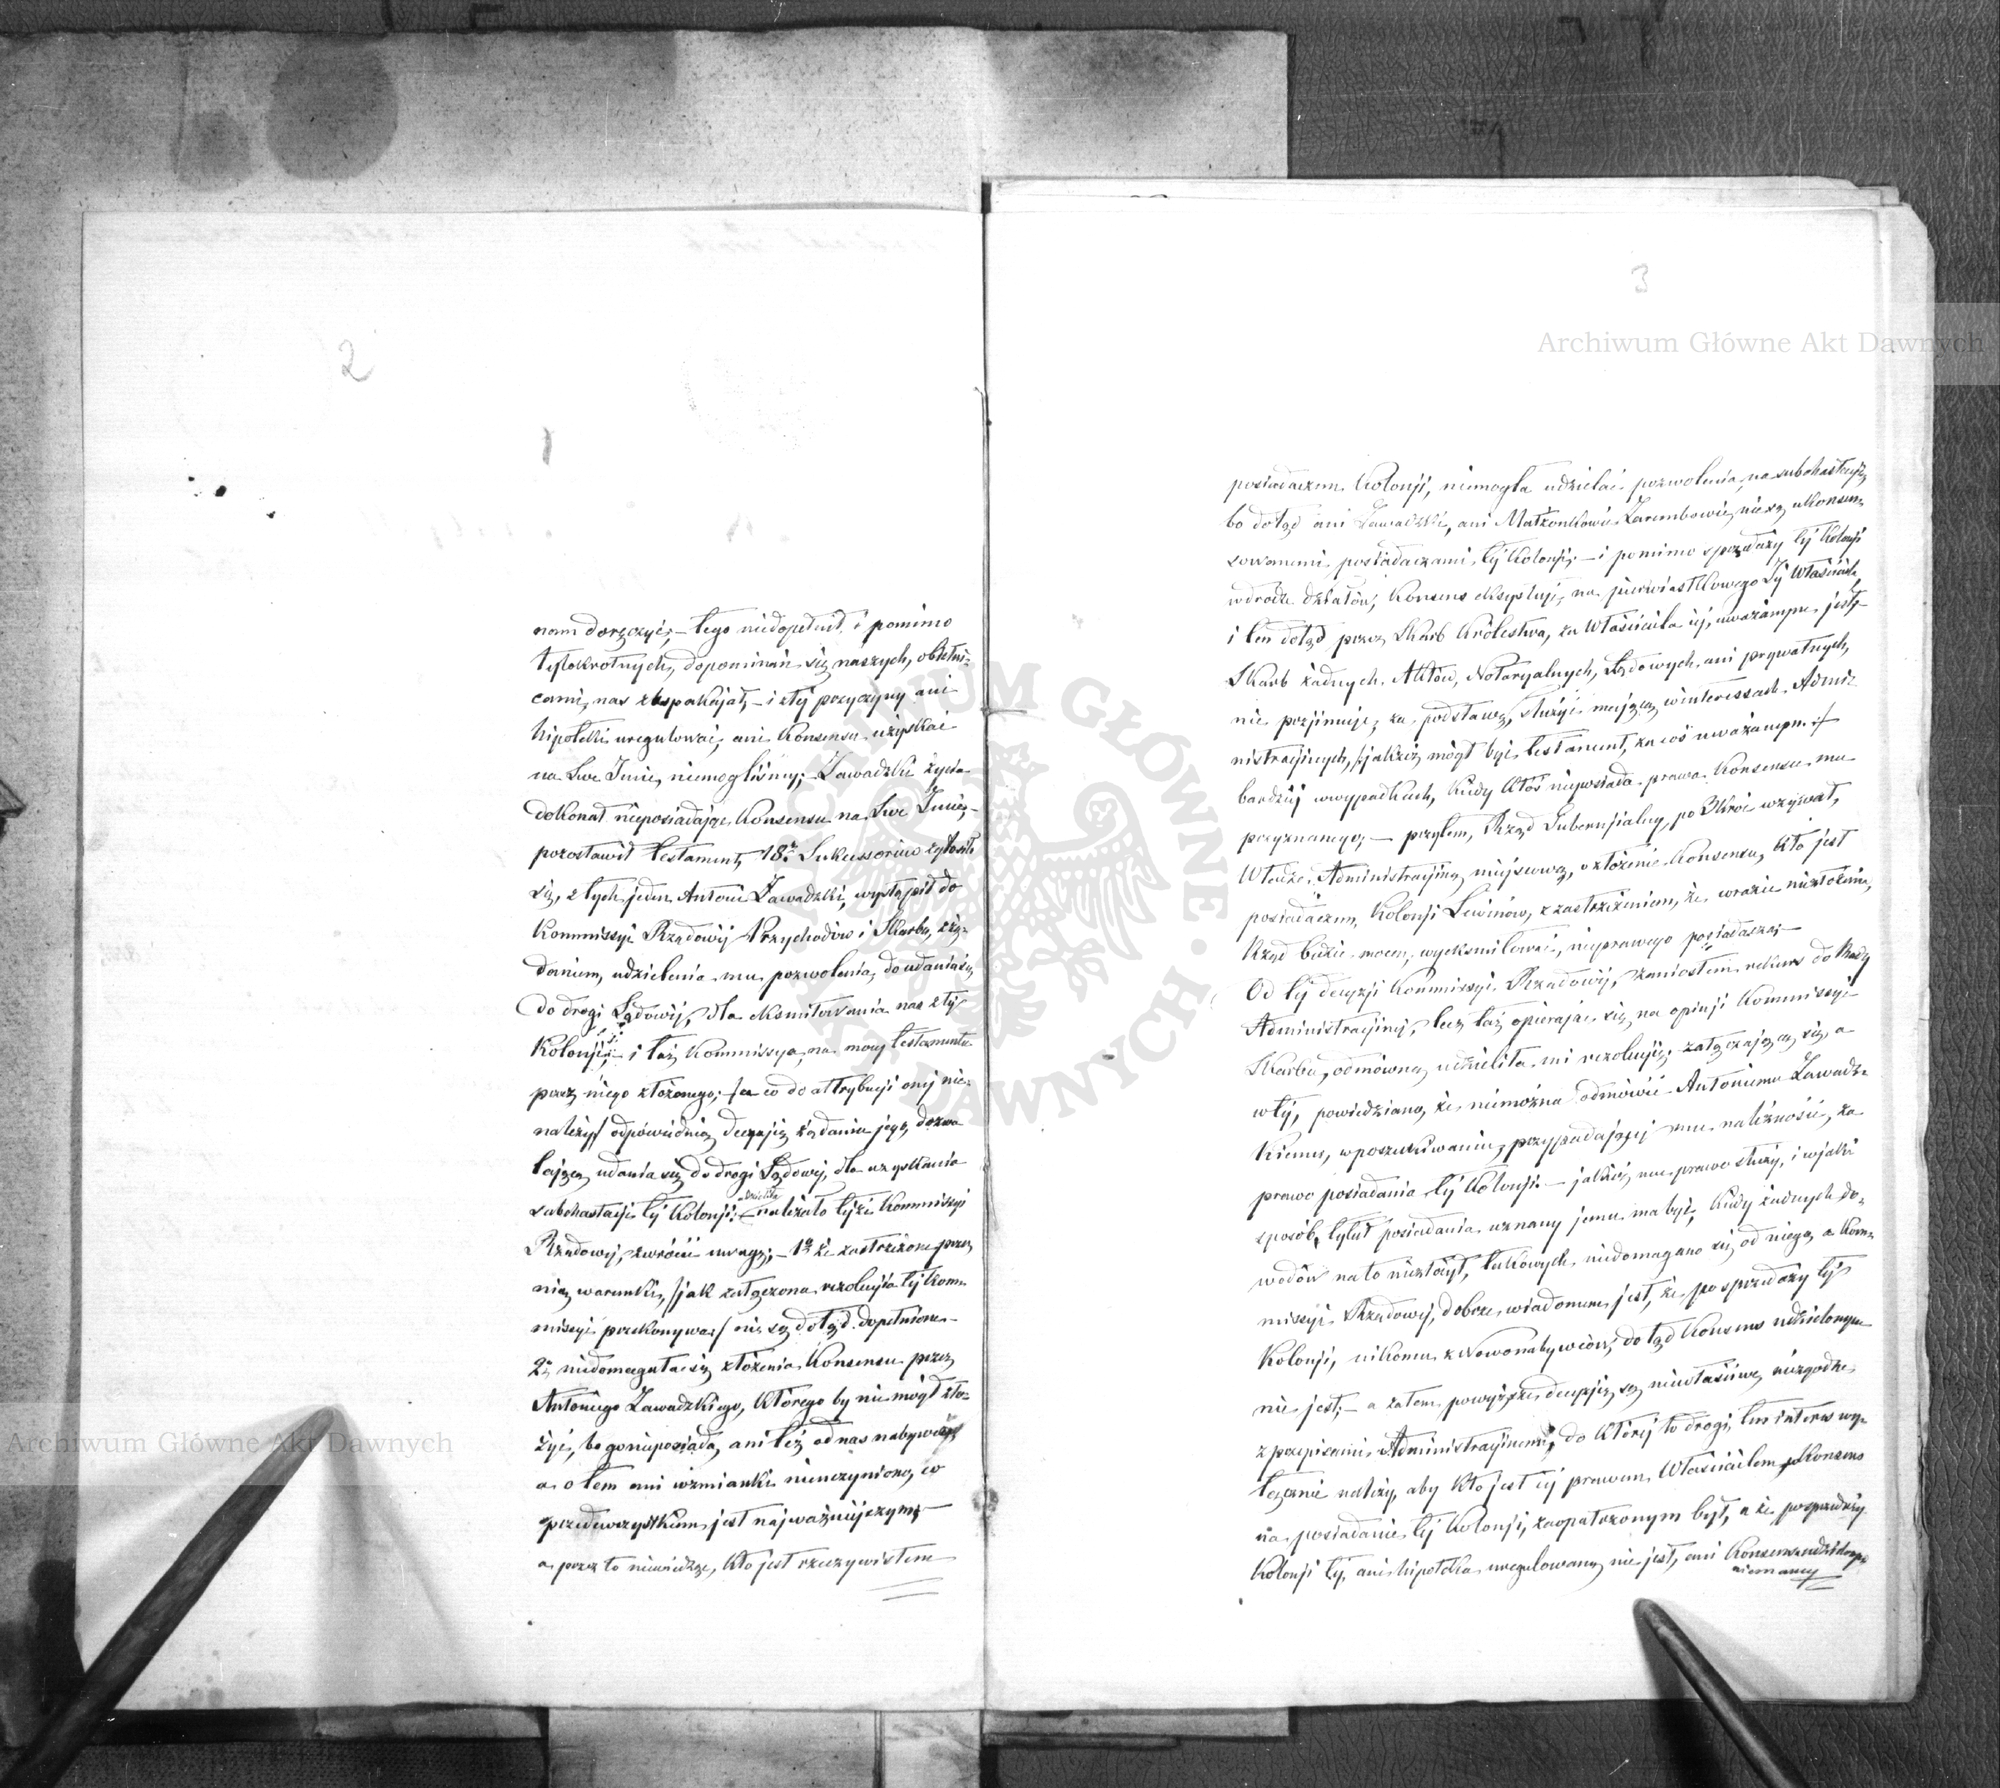 2
nam doręczyć; – tego niedopełnił, i pomimo
tylokrotnych, dopominań się naszych, obietni=
cami, nas zbuspakajał, – i z téj przyczyny ani
hipoteki uregulować, ani Konsensu uzyskać
na Swe Imie, niemogliśmy; – Zawadzki życia
dokonał nieposiadając Konsensu na Swe Imie, –
pozostawił testament, 18. Sukcessorów zgłosiło
się, z tych jeden Antoni Zawadzki, wystąpił do
Kommissyi Rządowéj Przychodów i Skarbu, z żą=
daniem, udzielenia mu pozwolenia, do udania się
do drogi Sądowéj, dla eksmitowania nas z téj
Kolonji; – i taż Kommissya, na mocy testamentu
przez niego złożonego; /: co do attrybucji onéj nie
należy :/ odpowiednią decyzją żądaniu jego, dozwa
lającą udania się do drogi Sądowej, dla uzyskania
udzieliła
subhastacji téj Kolonji; – należało téjże Kommissyi
Rządowej, zwrócić uwagę; – 1. że zastrzeżone przez
nią warunki, /: jak załączona rezolucja téj Kom=
missyi przekonywa :/ nie są dotąd dopełnione –
2. niedomagała się złożenia Konsensu przez
Antoniego Zawadzkiego, którego by nie mógł zło=
żyć, bo go nieposiada, ani też od nas nabywcy
a o tem ani wzmianki nieuczyniono, co
przedewszystkiem jest najważniejszym, –
a przez to niewiedząc, kto jest rzeczywistem
3
posiadaczem Kolonji, niemogła udzielać pozwolenia, na subhastację
bo dotąd ani Zawadzki, ani Małżonkowie Zarembowie, nie są ukonsen=
sowanemi posiadaczami téj Kolonji; – i pomimo sprzedaży téj Kolonji
w drodze działów, Konsens eksystuje, na pierwiastkowego Jéj Właściciela,
i ten dotąd przez Skarb Królestwa, za Właściciela jéj, uważanym jest, –
Skarb żadnych Aktów, Notaryalnych, Sądowych ani prywatnych,
nie przyjmuje, za podstawę, służyć mającą w interessach Admi=
nistracyjnych, /: jakżeż mógł być testament, za coś uważanym :/
bardziej w wypadkach, kiedy ktoś nieposiada prawa Konsensu mu
przyznanego; – przytem, Rząd Gubernjalny, po 3kroć wzywał,
Władze Administracyjną miejscową, o złożenie Konsensu, kto jest
posiadaczem, Kolonji Lewinów, z zastrzeżeniem, że w razie niezłożenia,
Rząd będzie mocen, wyeksmitować, nieprawego posiadacza; –
Od téj decyzji Kommissyi Rządowéj, zaniosłem rekurs do Rady
Administracyjnéj, lecz taż opierając się, na opinji Kommissyi
Skarbu, odmówną udzieliła mi rezolucję, załączającą się, a
w téj, powiedziano, że niemożna odmówić Antoniemu Zawadz=
kiemu, w poszukiwaniu, przypadającéj mu należności, za
prawo posiadania téj Kolonji – jakież mu prawo służy, i w jaki
sposób, tytuł posiadania uznany jemu ma być, kiedy żadnych do=
wodów na to niezłożył, takowych, niedomagano się od niego, a Kom=
missyi Rządowéj, dobrze wiadomem jest, że po sprzedaży téj
Kolonji, nikomu z Nowonabywców, dotąd Konsens udzielonym
nie jest; – a zatem powyższe decyzje, są niewłaściwe, niezgodne
z przepisami Administracyjnemi, do której to drogi, ten interes wy=
łącznie należy, aby kto jest jéj prawem Właścicielem, Konsens
na posiadanie téj Kolonji, zaopatrzonym był, a że po sprzedaży
Kolonji téj, ani hipoteka uregulowaną nie jest, ani Konsensu udzielonego
niemamy
Archiwum Główne Akt Dawnych
Archiwum Główne Akt Dawnych
ARCHIWUM GŁÓWNE AKT DAWNYCH